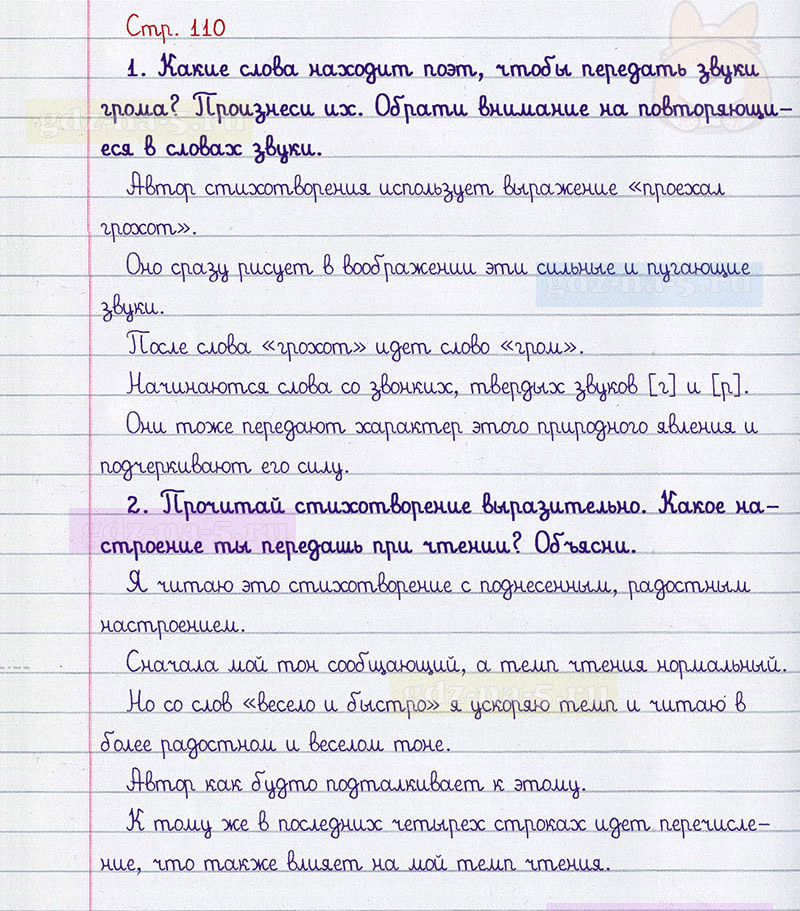 Стр. 110
1. Какие слова находит поэт, чтобы передать звуки
грома? Произнеси их. Обрати внимание на повторяющи-
еся в словах звуки.
Автор стихотворения использует выражение «проехал
грохот».
Оно сразу рисует в воображении эти сильные и пугающие
звуки.
После слова «грохот» идет слово «гром».
Начинаются слова со звонких, твердых звуков [г] и [р].
Они тоже передают характер этого природного явления и
подчеркивают его силу.
2. Прочитай стихотворение выразительно. Какое на-
строение ты передашь при чтении? Объясни.
Я читаю это стихотворение с поднесенным, радостным
настроением.
Сначала мой тон сообщающий, а темп чтения нормальный.
Но со слов «весело и быстро» я ускоряю темп и читаю в
более радостном и веселом тоне.
Автор как будто подталкивает к этому.
К тому же в последних четырех строках идет перечисле-
ние, что также влияет на мой темп чтения.
gdz-na-5.ru
gdz-na-5.ru
gdz-na-5.ru
gdz-na-5.ru